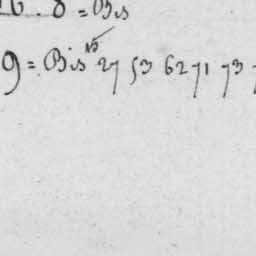 16. 8 = Bis
9 = Bis 27 53 62 71 73